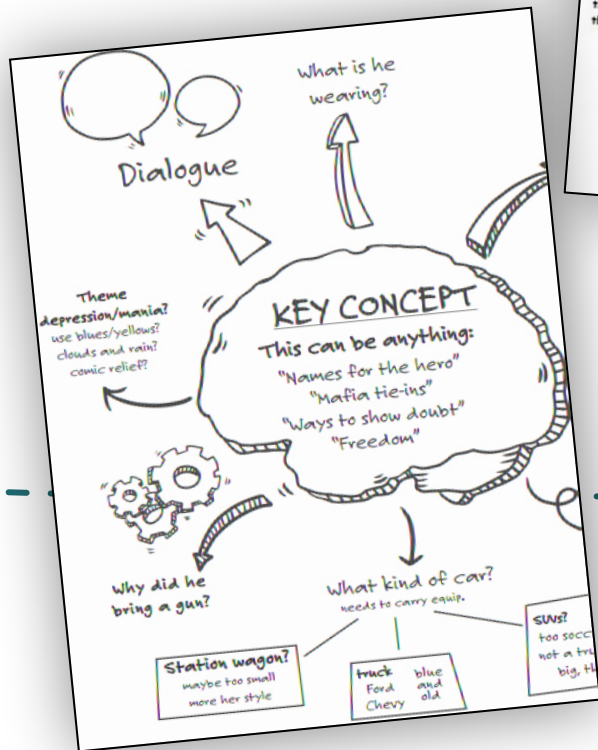 What is he
wearing?
Dialogue
Theme
depression/mania?
use blues/yellows?
clouds and rain?
comic relief?
KEY CONCEPT
This can be anything:
"Names for the hero"
"Mafia tie-ins"
"Ways to show doubt"
"Freedom"
Why did he
bring a gun?
What kind of car?
needs to carry equip.
Station wagon?
maybe too small
more her style
truck
Ford
Chevy
blue
and
old
SUVs?
too
not a
big,